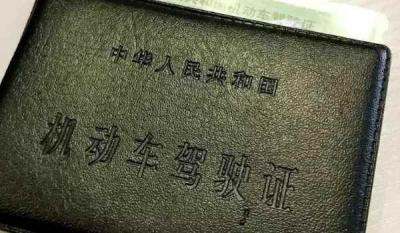 共和国机动车驾驶证
中华人民共和国
机动车驾驶证